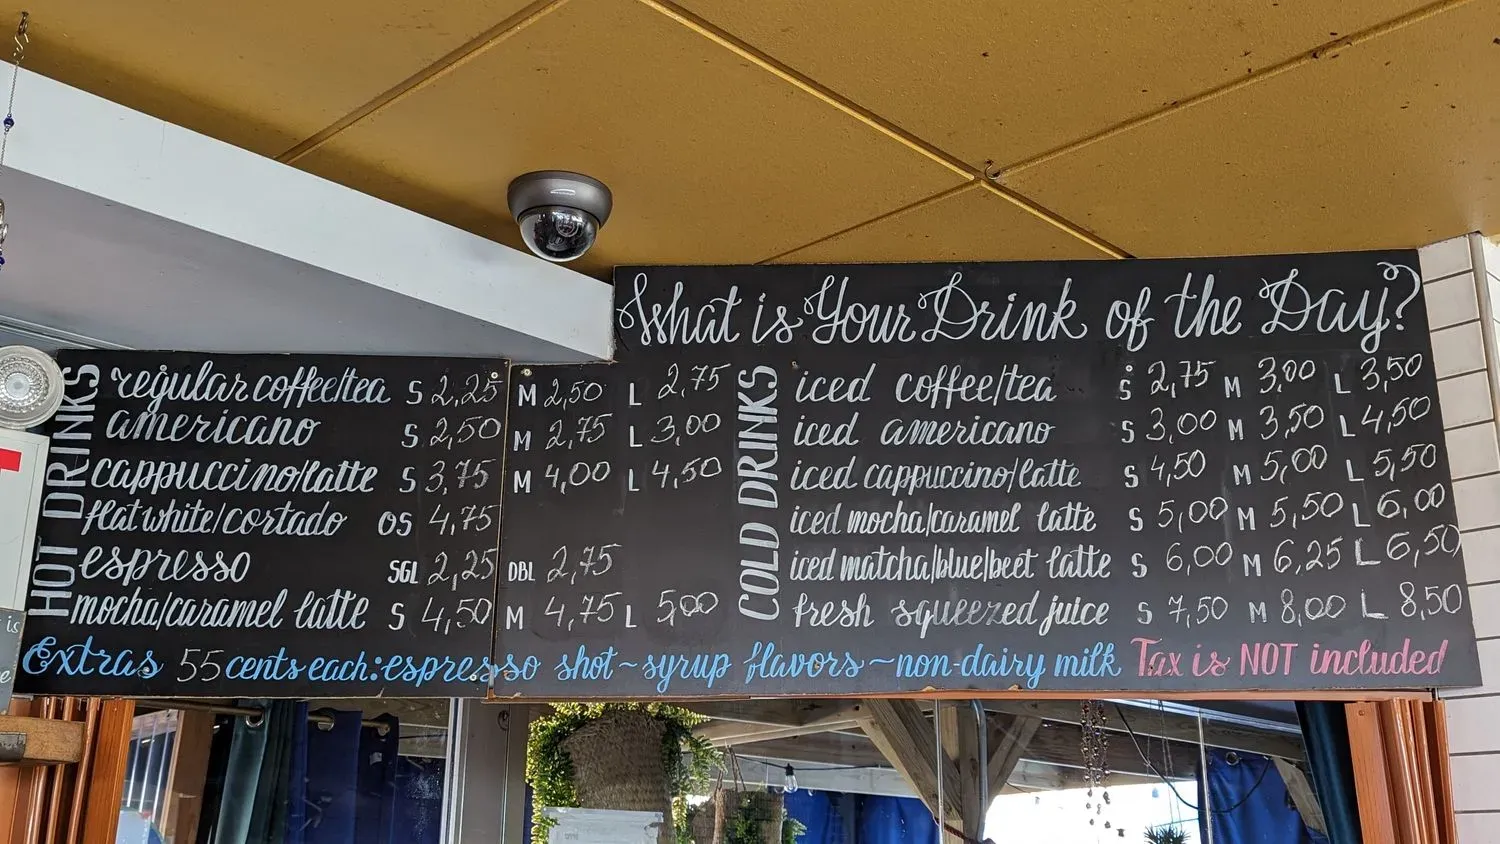 What is Your Drink of the Day?
HOT DRINKS
regular coffee/tea S 2,25 M 2,50 L 2,75
americano S 2,50 M 2,75 L 3,00
cappuccino/latte S 3,75 M 4,00 L 4,50
flat white/cortado OS 4,75
espresso SGL 2,25 DBL 2,75
mocha/caramel latte S 4,50 M 4,75 L 5,00
COLD DRINKS
iced coffee/tea S 2,75 M 3,00 L 3,50
iced americano S 3,00 M 3,50 L 4,50
iced cappuccino/latte S 4,50 M 5,00 L 5,50
iced mocha/caramel latte S 5,00 M 5,50 L 6,00
iced matcha/blue/beet latte S 6,00 M 6,25 L 6,50
fresh squeezed juice S 7,50 M 8,00 L 8,50
Extras 55 cents each: espresso shot ~ syrup flavors ~ non-dairy milk Tax is NOT included
is